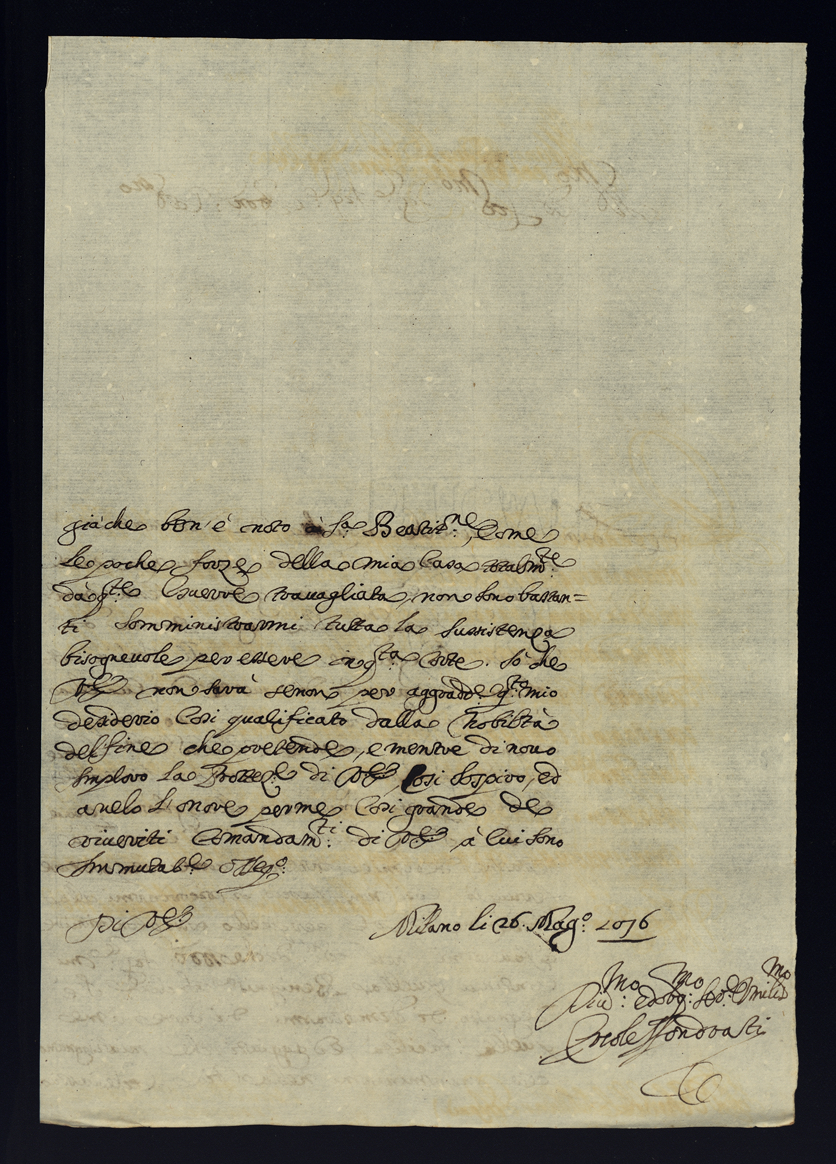 già che ben'è noto à S.ª Beatit.ne, come
le poche forze della mia Casa
da q.te Guerre travagliata, non sono bastan=
ti somministrarmi tutta la sussistenza
bisognevole per essere in q.ta Corte. Sò che
V.E. non sarà senon per aggradir q.to mio
desiderio così qualificato dalla Nobiltà
del fine che pretende, e mentre di novo
Imploro la Protez.e di V.E. così sospiro, ed
anelo l'onore per me così grande de
riveriti Comandam.ti di V.E. à cui sono
Immutab.te
Di V.E.
Milano li 26. Mag.o
Div.mo ed obg.mo Ser.e Umilis.mo
Ercole Sfondrati